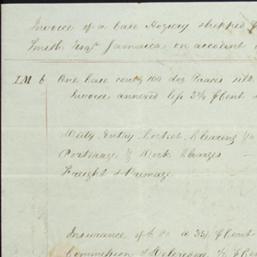 Invoice of a Case Hosiery shipped
Smith Esqr Jamaica, on account
IM 6 One Case contg 100 doz Pairs silk
Invoice annexed less 2½ ₱ Cent
Duty, Entry, Cocket, Clearing
Porterage & Dock Charges
Freight & Primage
Insurance of £ a ₱ Cent
Commission & ½ ₱ Cent